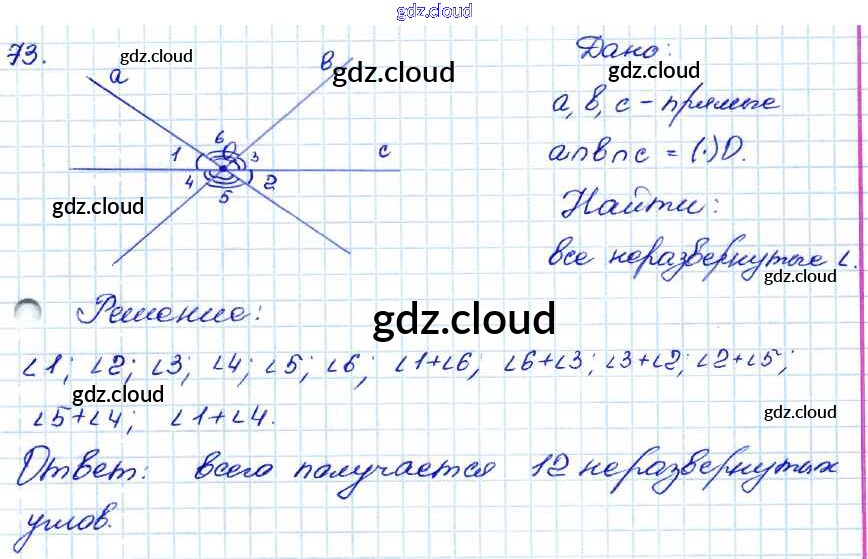 gdz.cloud
73.
gdz.cloud
a
b
gdz.cloud
Дано:
gdz.cloud
a, b, c - прямые
a∩b∩c = (·)O.
6
O
1
3
c
4
2
5
gdz.cloud
Найти:
все неразвернутые ∠.
gdz.cloud
Решение:
gdz.cloud
∠1; ∠2; ∠3; ∠4; ∠5; ∠6; ∠1+∠6; ∠6+∠3; ∠3+∠2; ∠2+∠5;
gdz.cloud
∠5+∠4; ∠1+∠4.
gdz.cloud
Ответ: всего получается 12 неразвернутых
углов.